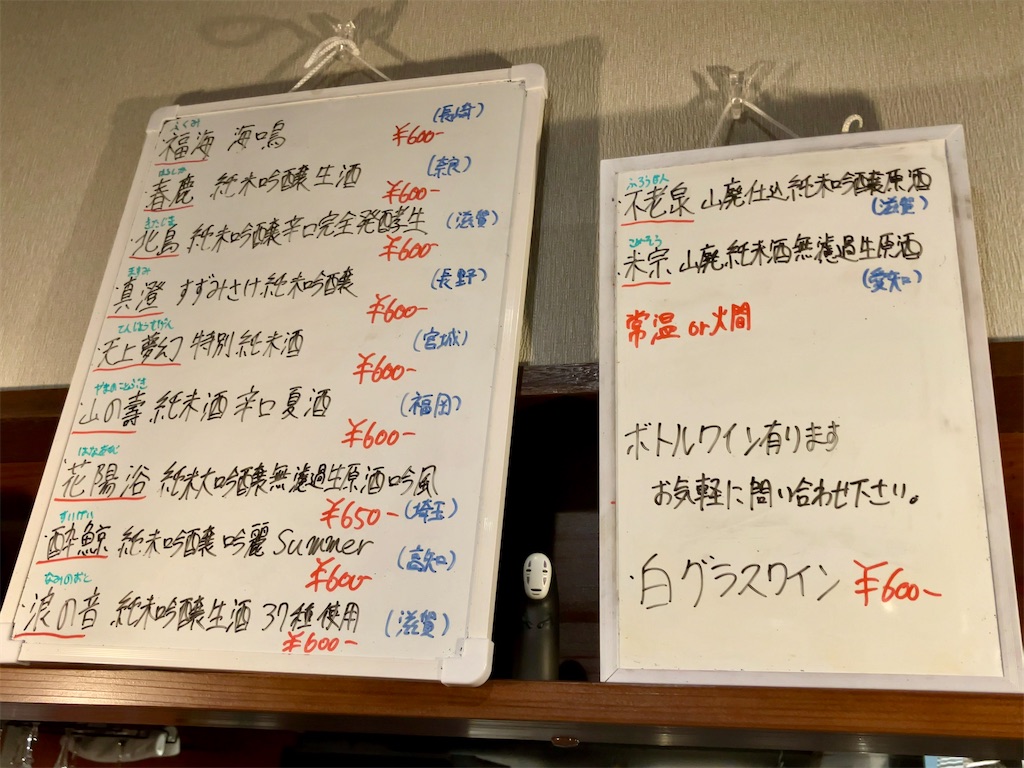 ふくみ
福海 海鳴 (長崎)
¥600-
はるしか
春鹿 純米吟醸生酒 (奈良)
¥600-
きたじま
北島 純米吟醸辛口完全発酵生 (滋賀)
¥600-
ますみ
真澄 すずみさけ純米吟醸 (長野)
¥600-
てんじょうむげん
天上夢幻 特別純米酒 (宮城)
¥600-
やまのことぶき
・山の壽 純米酒 辛口 夏酒 (福岡)
¥600-
はなあび
・花陽浴 純米大吟醸無濾過生原酒吟風
¥650- (埼玉)
すいげい
・酔鯨 純米吟醸 吟麗 Summer (高知)
¥600
なみのおと
・浪の音 純米吟醸生酒 37種使用 (滋賀)
¥600-
ふろうせん
・不老泉 山廃仕込純米吟醸原酒
(滋賀)
こめそう
・米宗 山廃純米酒無濾過生原酒
(愛知)
常温 or 燗
ボトルワイン有ります
お気軽に問い合わせ下さい。
・白グラスワイン ¥600-